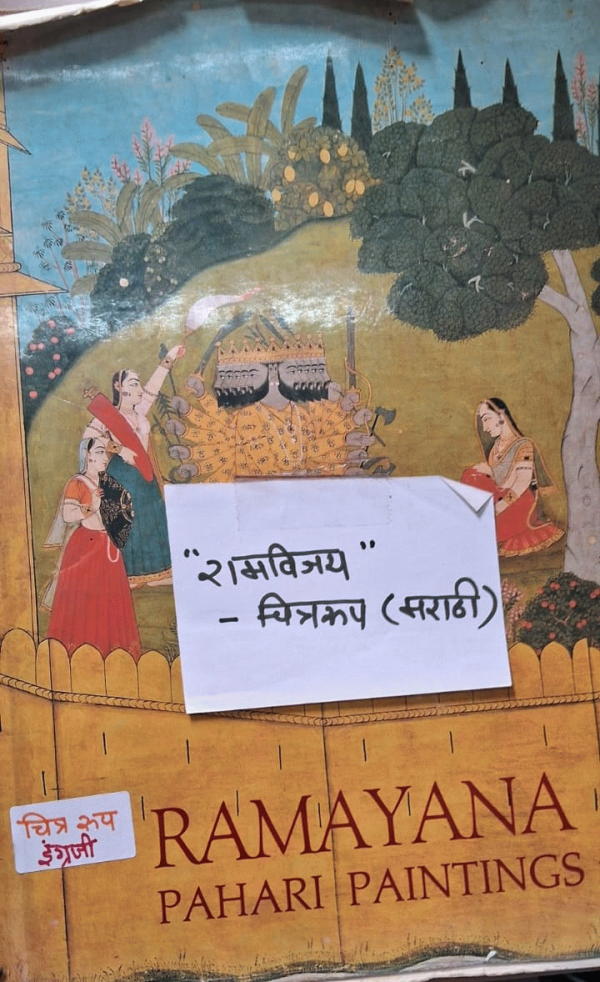 "रामविजय"
- चित्ररूप (मराठी)
चित्र रूप
इंग्रजी
RAMAYANA
PAHARI PAINTINGS